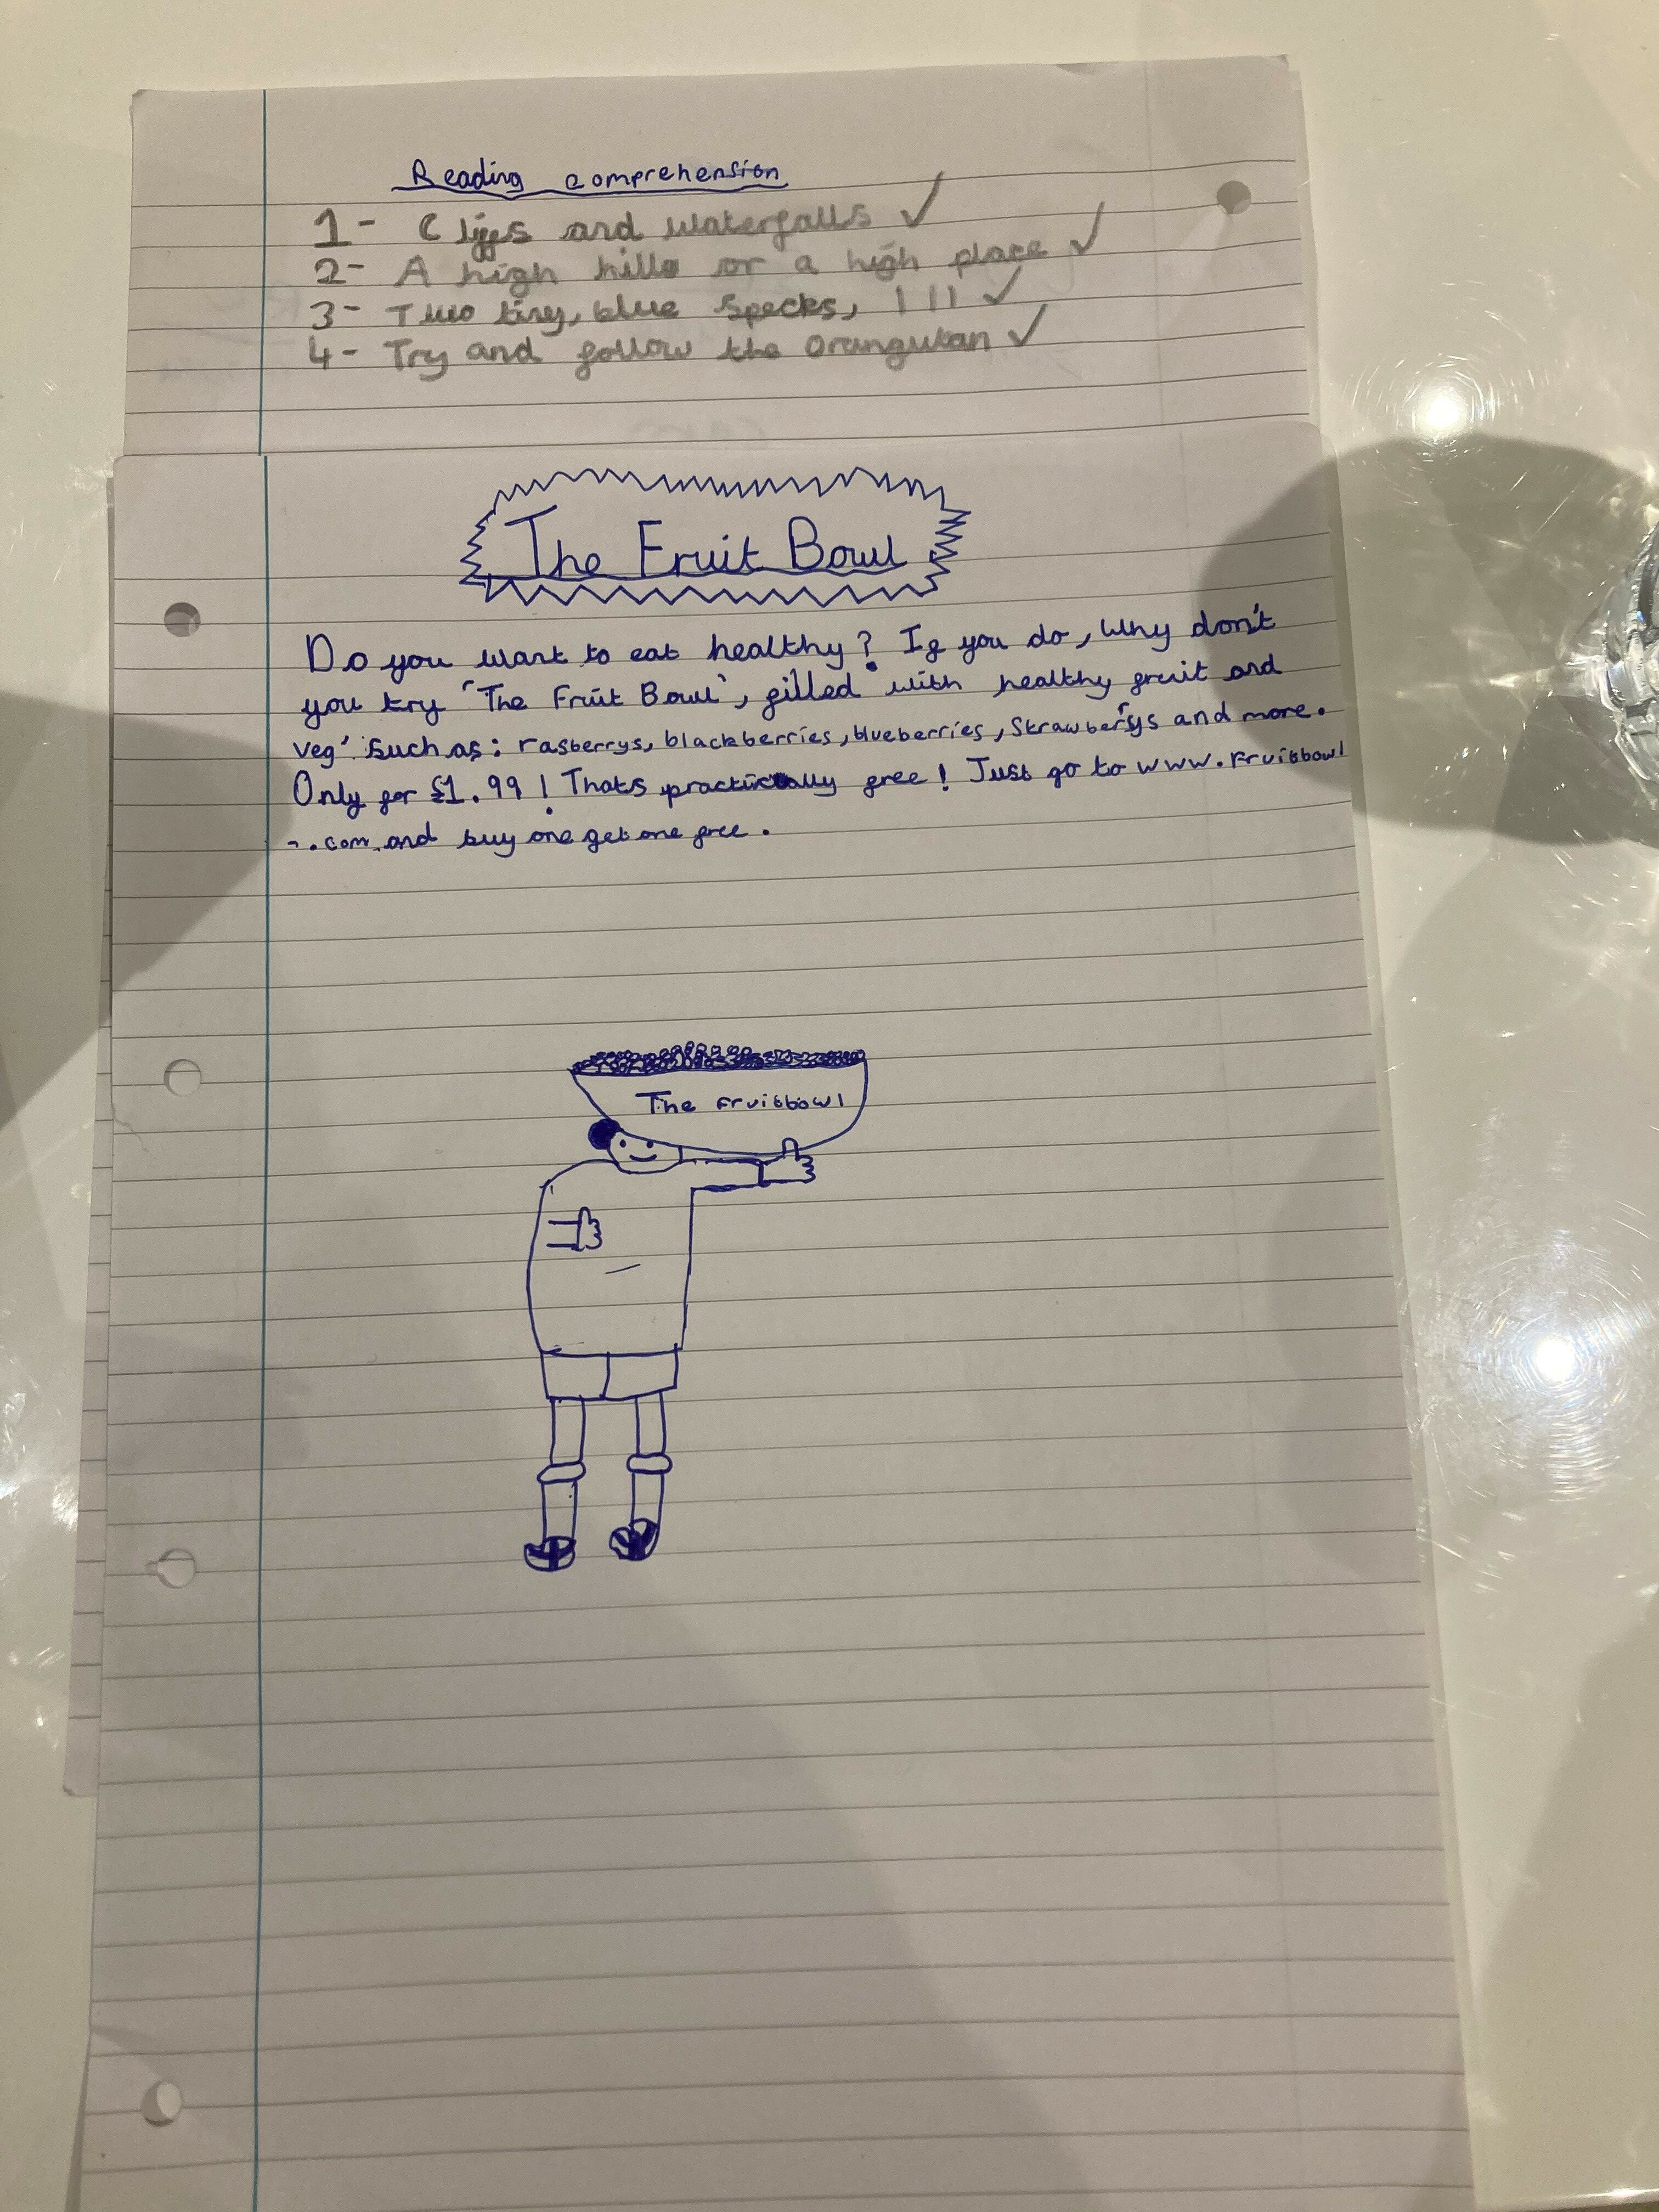 Reading comprehension
1- Cliffs and waterfalls ✓
2- A high hill or a high place ✓
3- Two tiny, blue specks, 111 ✓
4- Try and follow the Orangutan ✓
The Fruit Bowl
Do you want to eat healthy? If you do, why don't
you try 'The Fruit Bowl', filled with healthy fruit and
veg' such as: rasberrys, blackberries, blueberries, Strawberrys and more.
Only for £1.99! Thats practically free! Just go to www.Fruitbowl
-.com and buy one get one free.
The Fruitbowl